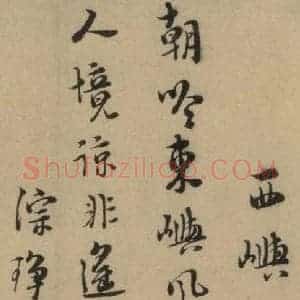 西嶼
朝吟東嶼風
人境諒非遙
淙琤
Shufaziliao.COM